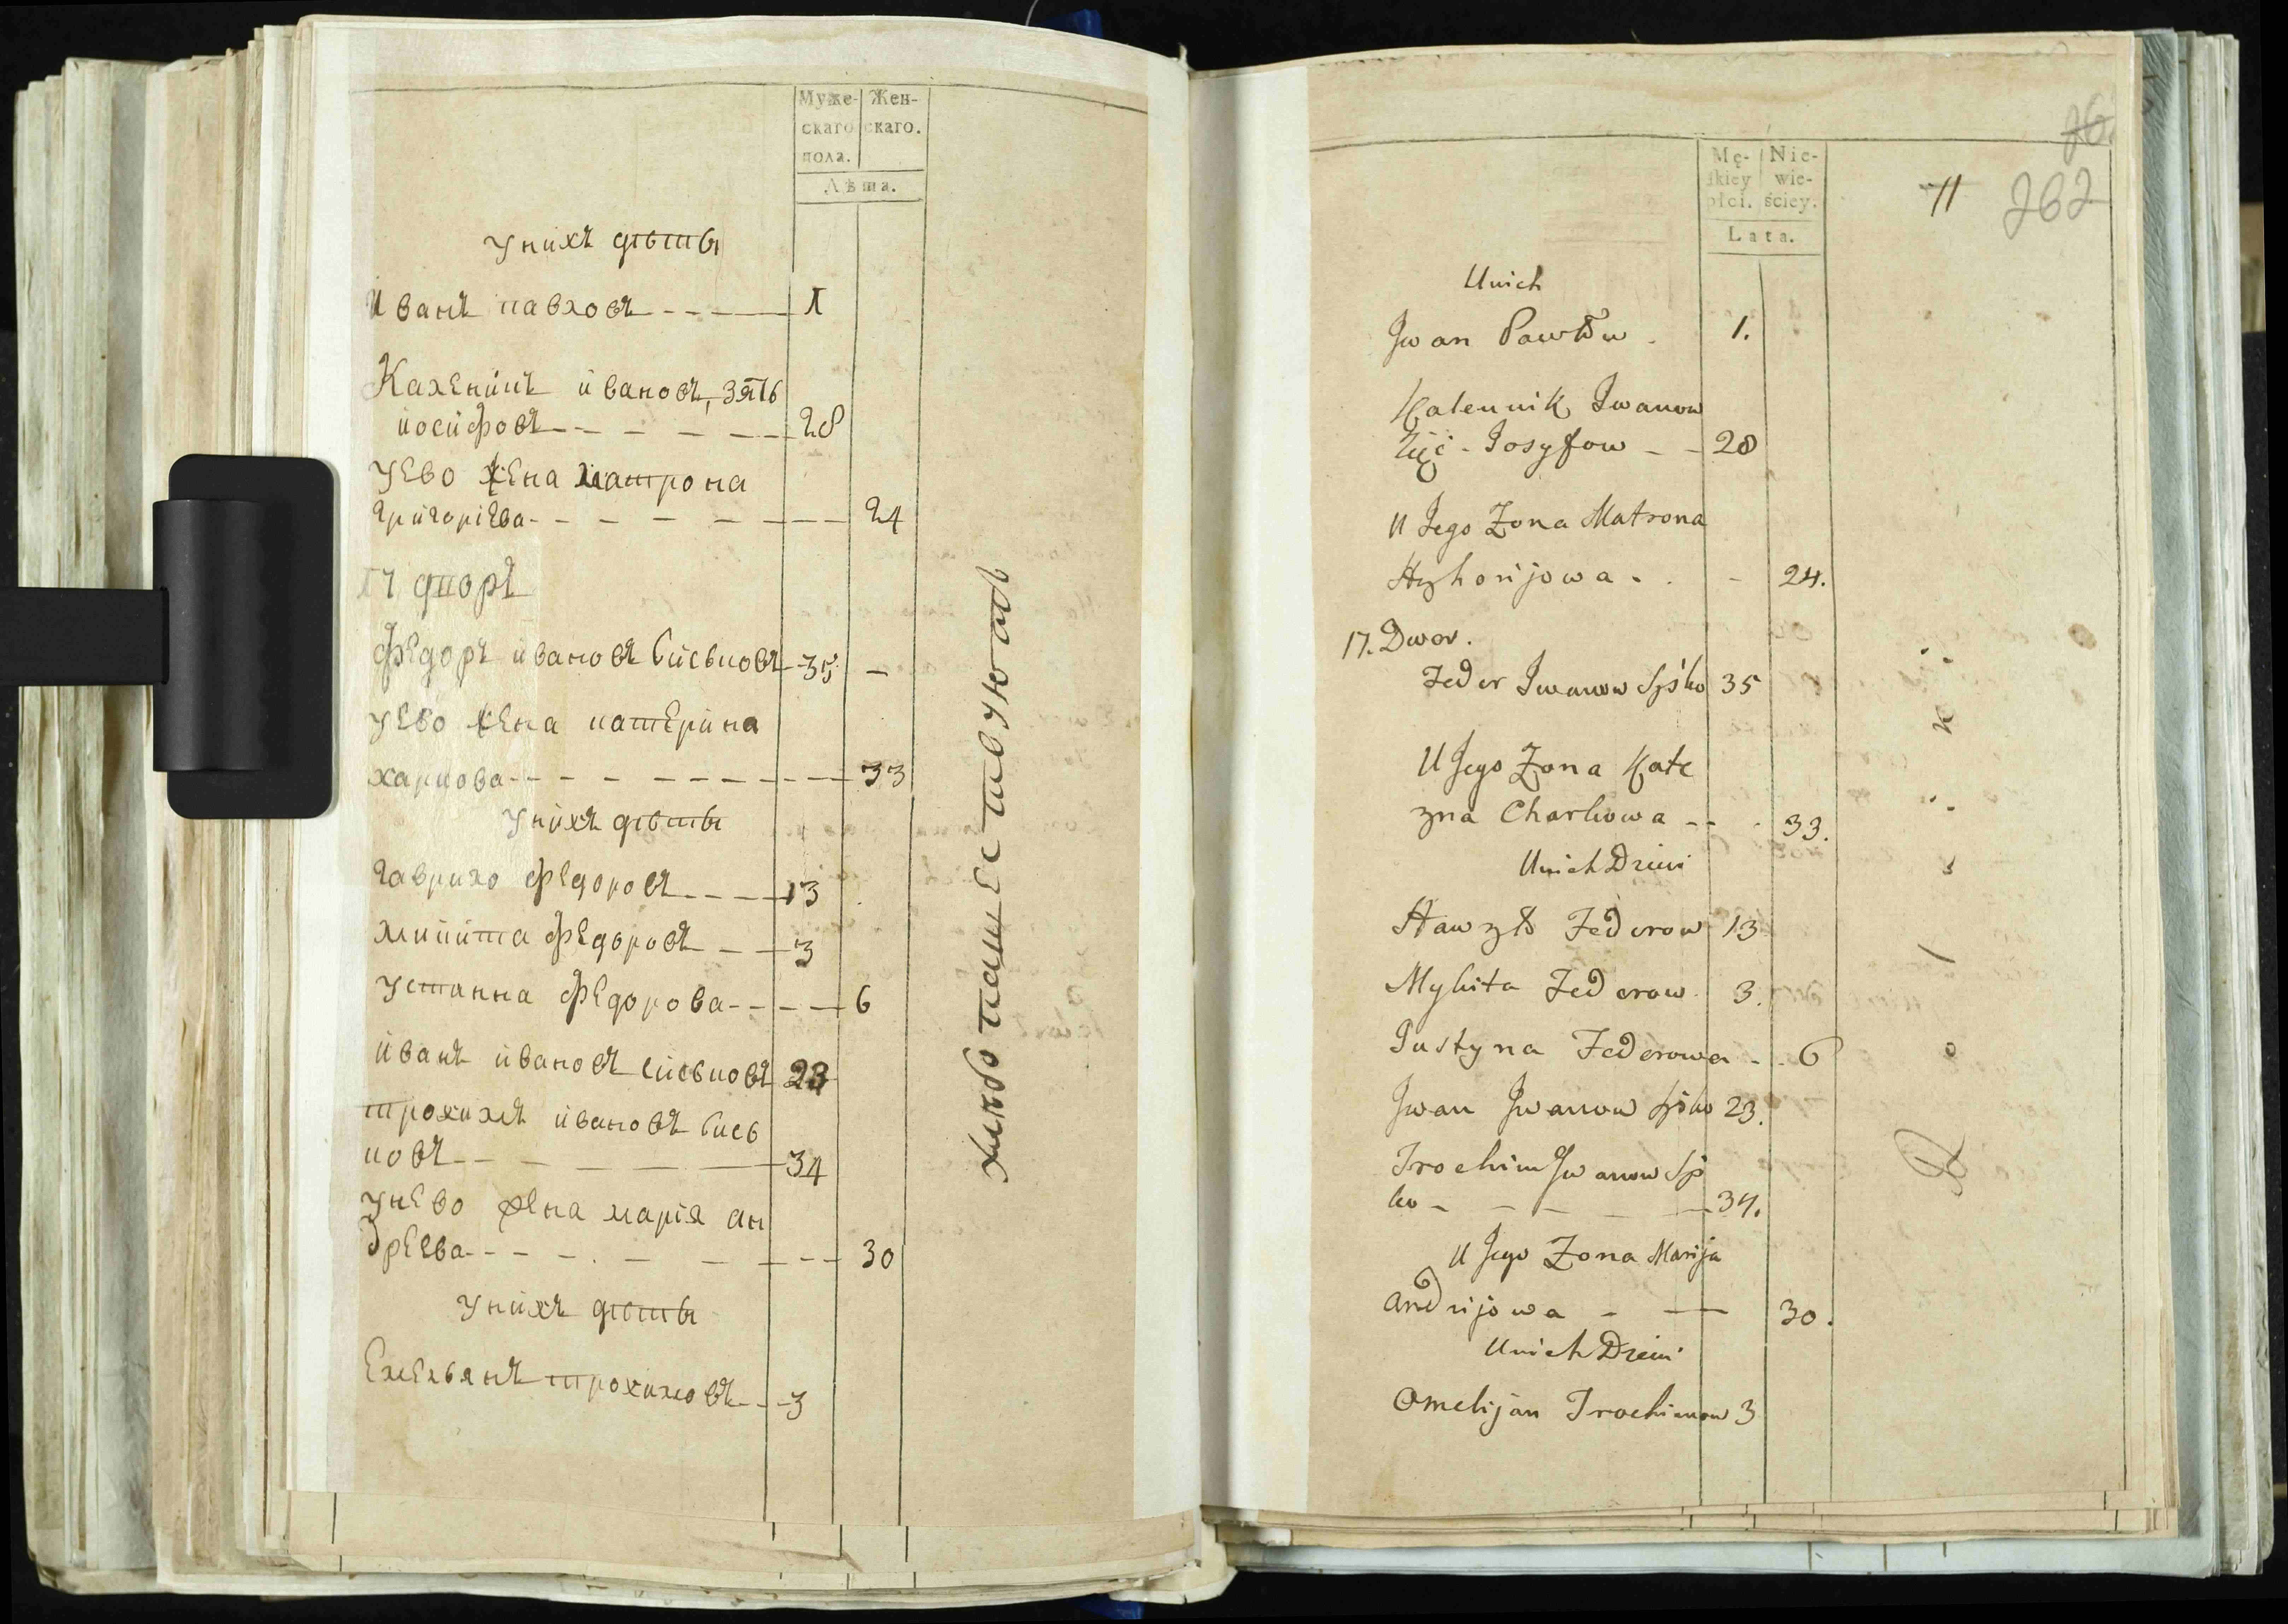 Муже- Жен-
скаго скаго.
пола.
Лѣта.
у нихъ дѣти
иванъ павловъ - - - 1
Каленикъ ивановъ, зять
иосифовъ - - - 28
у ево жена матрона
григорієва - - - 24
17 дворъ
федоръ ивановъ сиськовъ - 35 -
у ево жена катерина
харкова - - - 33
у нихъ дѣти
гаврило федоровъ - - - 13
микита федоровъ - - 3
устинна федорова - - - 6
иванъ ивановъ сиськовъ 23
трохимъ ивановъ сись
ковъ - - - 34
у нево жена марія ан
дреева - - - 30
у нихъ дѣти
Емельянъ трохимовъ - - 3
хлѣбопашествуютъ
26.
11 262
Mę- Nie-
skiey wie-
płci. ściey.
Lata.
Unich
Jwan Pawłow . 1.
Kalennik Jwanow
Zięć - Josyfow - - 28
U Jego Zona Matrona
Hryhorijowa - . - 24.
17. Dwor.
Fedor Jwanow Syśko 35
U Jego Zona Kate
zna Charkowa - - . 33.
Unich Dzieci
Hawryło Fedorow 13
Mykita Fedorow . 3.
Justyna Fedorowa - . 6
Jwan Jwanow Syśko 23.
Trochim Jwanow Sys
ko - - - 34.
U Jego Zona Marija
Andrijowa - - 30.
Unich Dzieci
Omelijan Trochimow 3